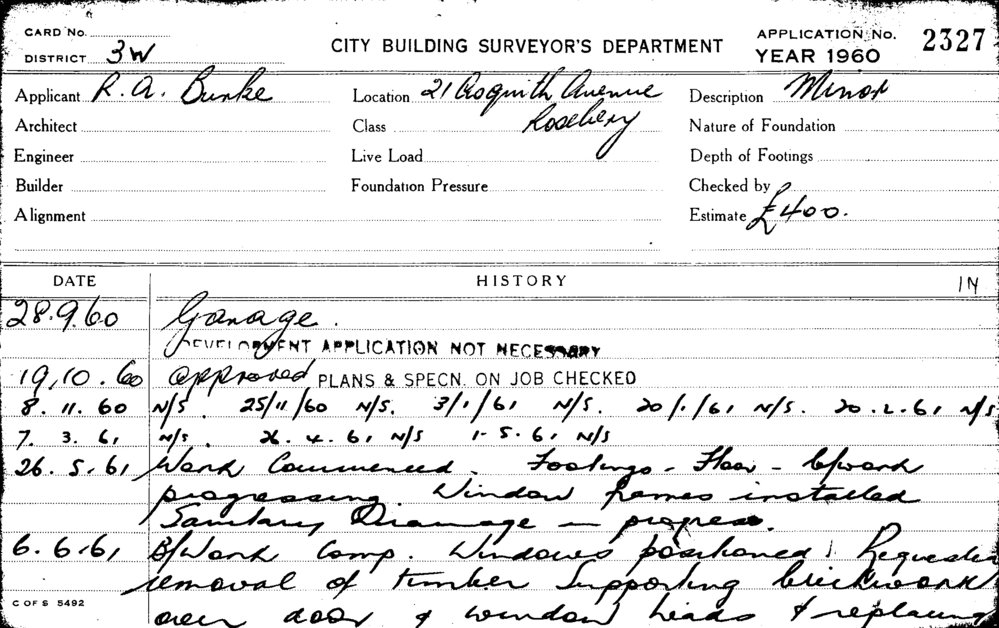 CARD No.
DISTRICT 3W
CITY BUILDING SURVEYOR'S DEPARTMENT
APPLICATION No. 2327
YEAR 1960
Applicant R. A. Burke Location 21 Asquith Avenue Description Minor
Architect Class Rosebery Nature of Foundation
Engineer Live Load Depth of Footings
Builder Foundation Pressure Checked by
Alignment Estimate £400.
DATE HISTORY IN
28.9.60 Garage.
DEVELOPMENT APPLICATION NOT NECESSARY
19.10.60 approved PLANS & SPECN. ON JOB CHECKED
8. 11. 60 N/S. 25/11/60 N/S. 3/1/61 N/S. 20/1/61 N/S. 20.2.61 N/S.
7. 3. 61 N/S. 26. 4. 61 N/S 1.5.61 N/S
26.5.61 Work Commenced. Footings - Floor - b/work
progressing. Window frames installed
Sanitary Drainage in progress.
6.6.61 B/Work Comp. Windows positioned. Requested
removal of timber supporting brickwork
over door & window heads & replacing
C OF S 5492